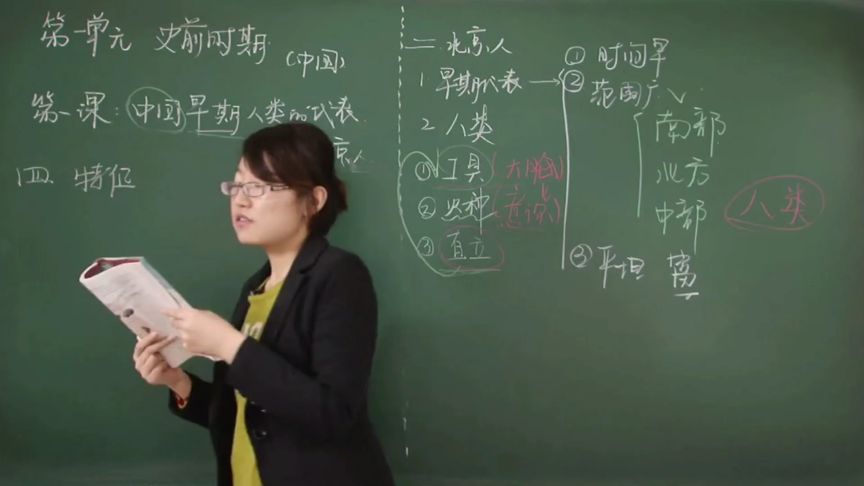 第一单元 史前时期
(中国)
第一课：中国早期人类的代表
京人
四 特征
二 北京人
1 早期代表 →
2 人类
① 工具（大脑）
② 火种（意识）
③ 直立
① 时间早
② 范围广
南部
北方
中部
人类
③ 平坦 离